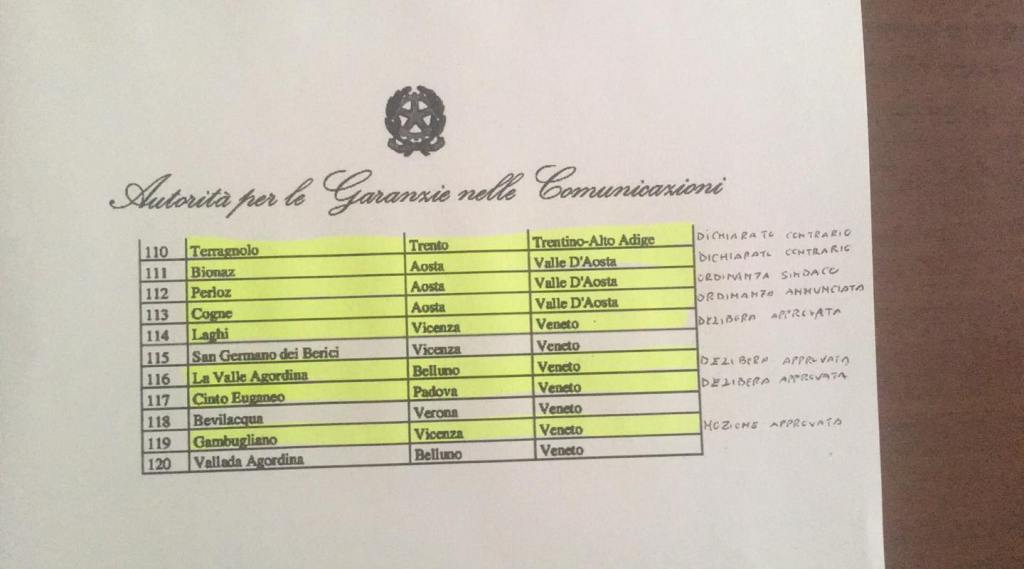 Autorità per le Garanzie nelle Comunicazioni
110 Terragnolo Trento Trentino-Alto Adige DICHIARATO CONTRARIO
111 Bionaz Aosta Valle D'Aosta DICHIARATO CONTRARIO
112 Perloz Aosta Valle D'Aosta ORDINANZA SINDACO
113 Cogne Aosta Valle D'Aosta ORDINANZA ANNUNCIATA
114 Laghi Vicenza Veneto DELIBERA APPROVATA
115 San Germano dei Berici Vicenza Veneto
116 La Valle Agordina Belluno Veneto DELIBERA APPROVATA
117 Cinto Euganeo Padova Veneto DELIBERA APPROVATA
118 Bevilacqua Verona Veneto
119 Gambugliano Vicenza Veneto MOZIONE APPROVATA
120 Vallada Agordina Belluno Veneto